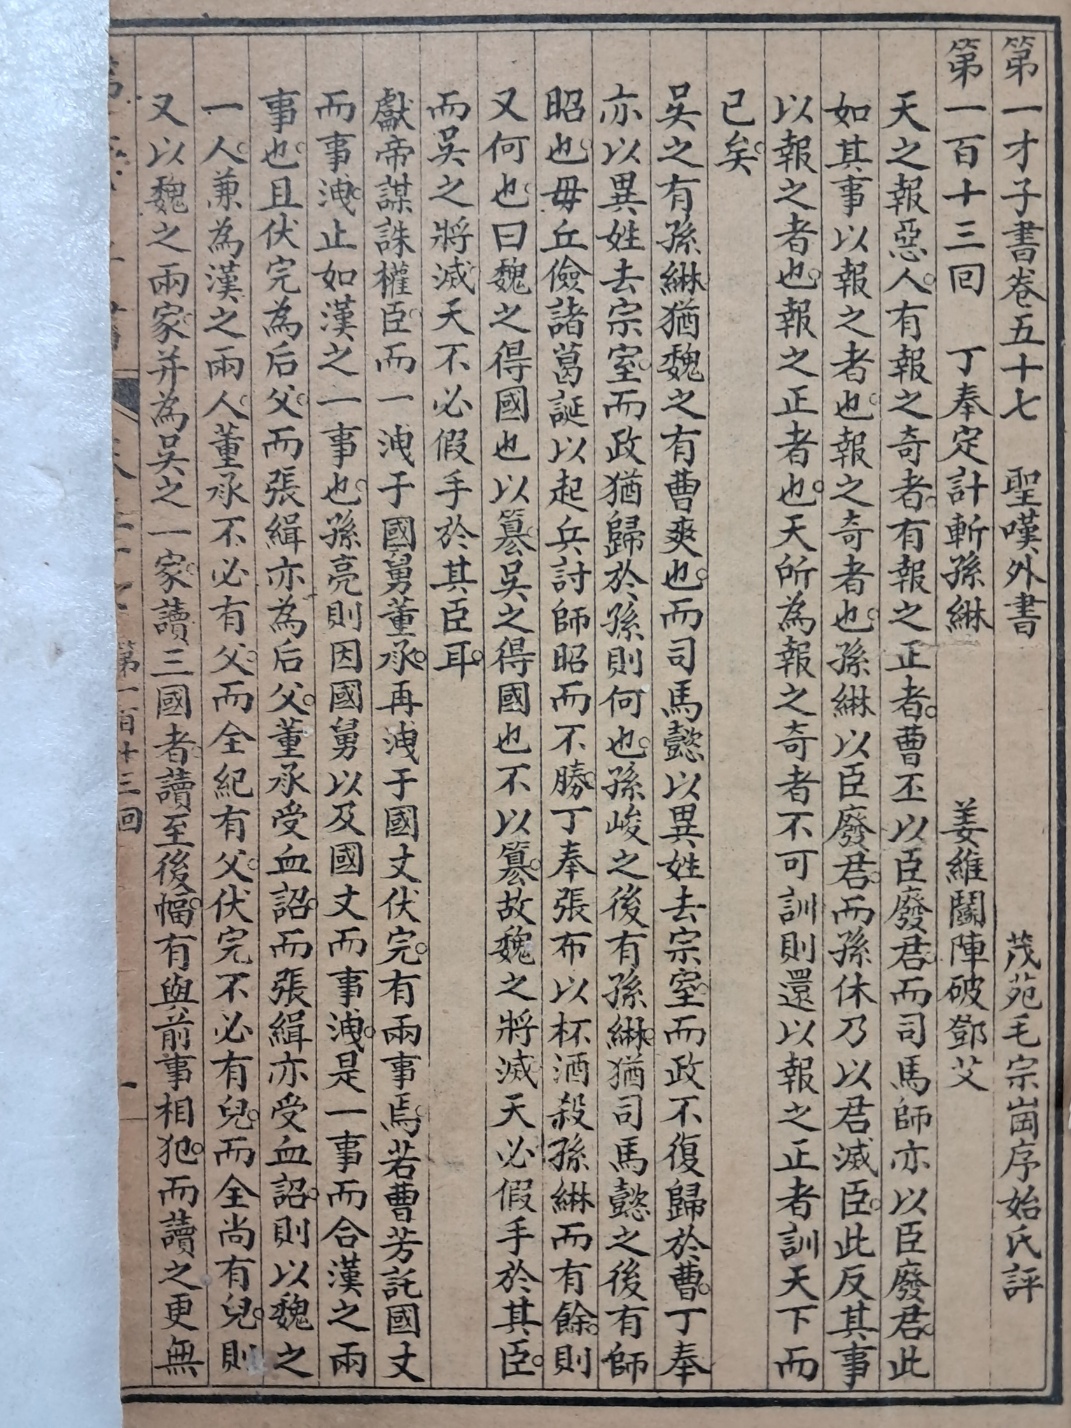 第一才子書卷五十七　聖嘆外書　茂苑毛宗崗序始氏評
第一百十三回　丁奉定計斬孫綝　姜維鬭陣破鄧艾
天之報惡人。有報之奇者。有報之正者。曹丕以臣廢君。而司馬師亦以臣廢君。此
如其事以報之者也。報之奇者也。孫綝以臣廢君。而孫休乃以君滅臣。此反其事
以報之者也。報之正者也。天所為報之奇者不可訓則還以報之正者訓天下而
已矣。
吳之有孫綝猶魏之有曹爽也。而司馬懿以異姓去宗室。而政不復歸於曹。丁奉
亦以異姓去宗室。而政猶歸於孫則何也。孫峻之後有孫綝。猶司馬懿之後有師
昭也。毋丘儉諸葛誕以起兵討師昭而不勝。丁奉張布以杯酒殺孫綝而有餘。則
又何也。曰魏之得國也以篡。吳之得國也不以篡。故魏之將滅。天必假手於其臣。
而吳之將滅。天不必假手於其臣耳。
獻帝謀誅權臣。而一洩于國舅董承。再洩于國丈伏完。有兩事焉。若曹芳託國丈
而事洩。止如漢之一事也。孫亮則因國舅以及國丈而事洩。是一事而合漢之兩
事也。且伏完為后父。而張緝亦為后父。董承受血詔。而張緝亦受血詔。則以魏之
一人。兼為漢之兩人。董承不必有父。而全紀有父。伏完不必有兒。而全尚有兒。則
又以魏之兩家。并為吳之一家。讀三國者。讀至後幅。有與前事相犯。而讀之更無
第一百十三回
一